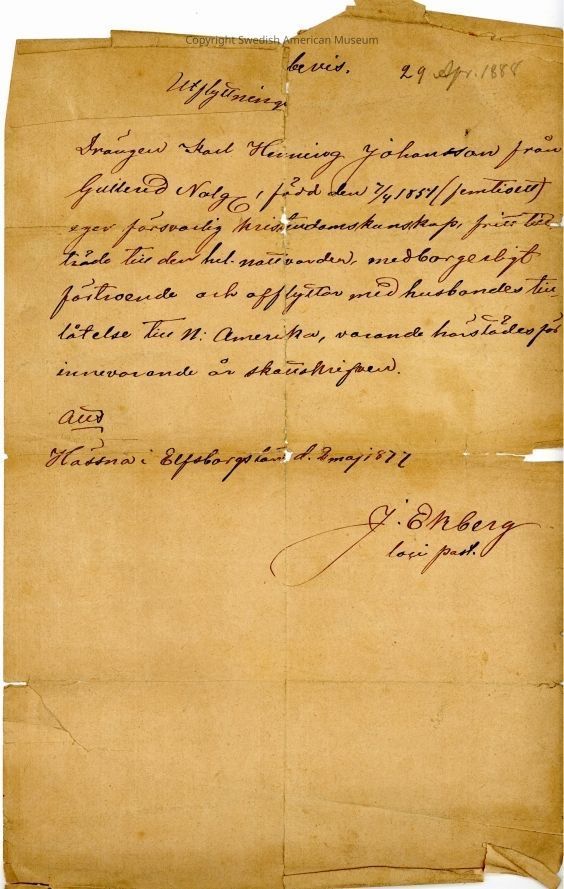 Copyright Swedish American Museum
bevis.
29 Apr. 1888
Utflyttnings
Drängen Karl Henning Johansson från
Gullered , född den 7/4 1854 (femtiofyra)
eger försvarlig kristendomskunskap, fritt till-
träde till den hel. nattvarden, medborgerligt
förtroende och afflyttar med husbondes till-
låtelse till N: Amerika, varande härstädes för
innevarande år skattskrifven.
Hässna i Elfsborgs län d. 2 maj 1877
J. Ekberg
past.